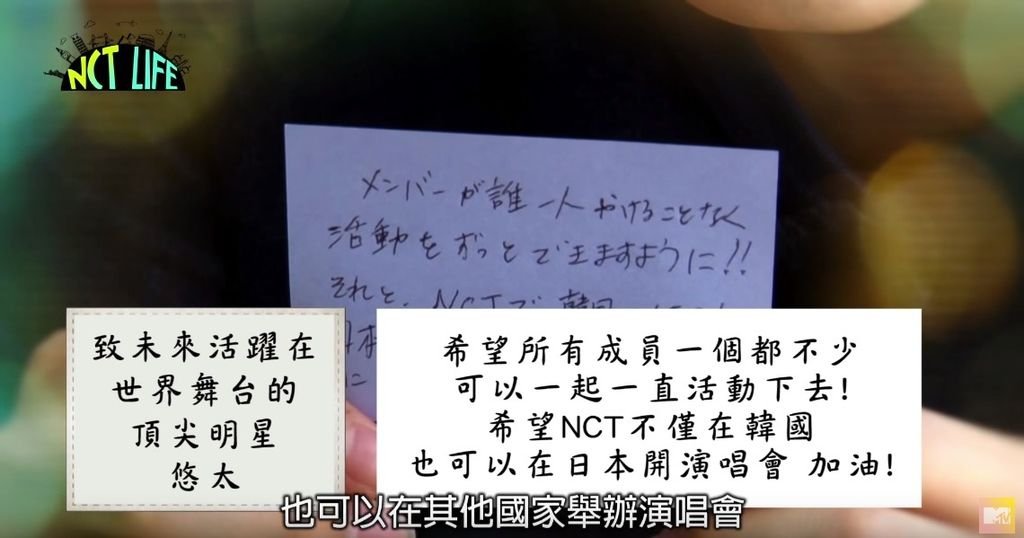 NCT LIFE
メンバーが誰一人かけることなく
活動をずっとできますように!!
それと、NCTで韓国
日本
に
致未來活躍在
世界舞台的
頂尖明星
悠太
希望所有成員一個都不少
可以一起一直活動下去!
希望NCT不僅在韓國
也可以在日本開演唱會 加油!
也可以在其他國家舉辦演唱會
MTV